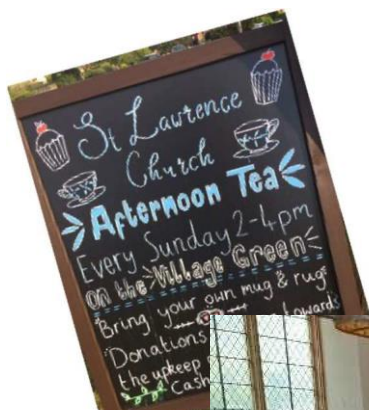 St Lawrence
Church
Afternoon Tea
Every Sunday 2-4pm
On the Village Green
Bring your own mug & rug
Donations towards
the upkeep
Cash